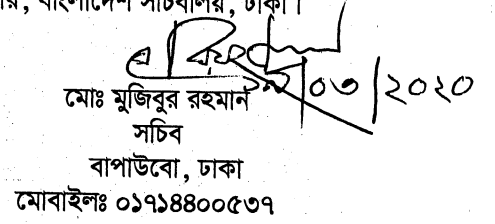 বাংলাদেশ সচিবালয়, ঢাকা।
/০৩/২০২০
মোঃ মুজিবুর রহমান
সচিব
বাপাউবো, ঢাকা
মোবাইলঃ ০১৭১৪৪০০৫৩৭